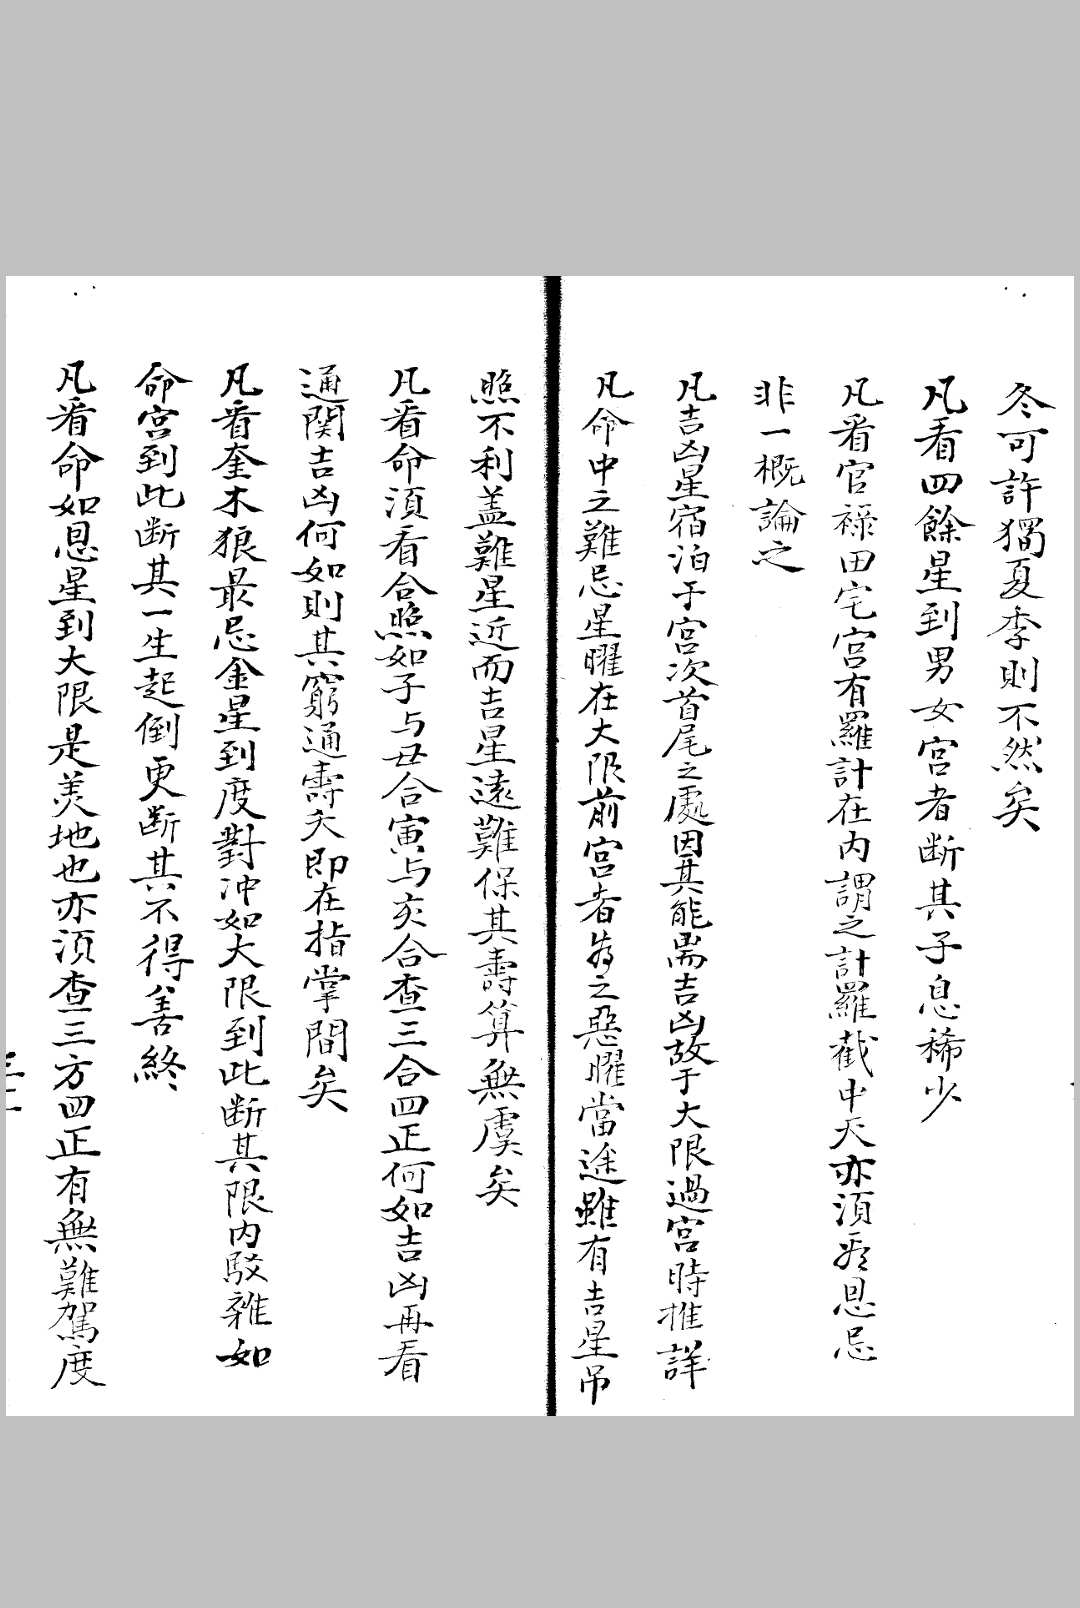 冬可許獨夏季則不然矣
凡看四餘星到男女宮者断其子息稀少
凡看官祿田宅宮有羅計在內謂之計羅截中天亦須看恩忌
非一概論之
凡吉凶星宿泊于宮次首尾之處因其能耑吉凶故于大限過宮時推詳
凡命中之難忌星曜在大限前宮者為之惡曜當途雖有吉星吊
照不利盖難星近而吉星遠難保其壽算無虞矣
凡看命須看合照如子与丑合寅与亥合查三合四正何如吉凶再看
通関吉凶何如則其窮通壽夭即在指掌間矣
凡看奎木狼最忌金星到度對冲如大限到此断其限內駁雜如
命宮到此断其一生起倒更断其不得善終
凡看命如恩星到大限是美地也亦須查三方四正有無難駕度